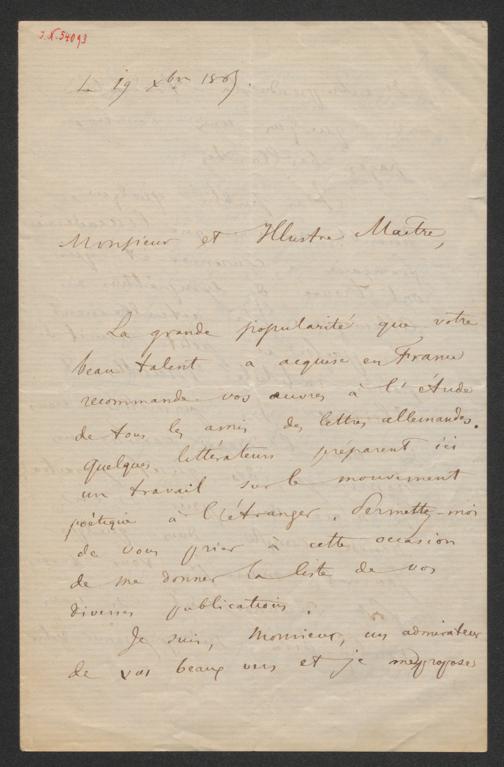 J.N. 54093
Le 19 xbre 1865.
Monsieur et Illustre Maître,
La grande popularité que votre
beau talent a acquise en France
recommande vos œuvres à l'étude
de tous les amis des lettres allemandes.
Quelques littérateurs préparent ici
un travail sur le mouvement
poétique à l'étranger. Permettez-moi
de vous prier à cette occasion
de me donner la liste de vos
diverses publications.
Je suis, Monsieur, un admirateur
de vos beaux vers et je me propose